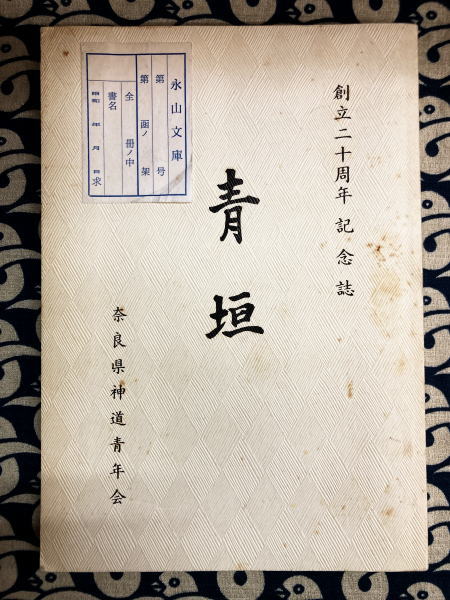 創立二十周年記念誌
青垣
奈良県神道青年会
永山文庫
第　　号
第　函ノ　架
全　冊ノ中
書名
昭和　年　月　日求